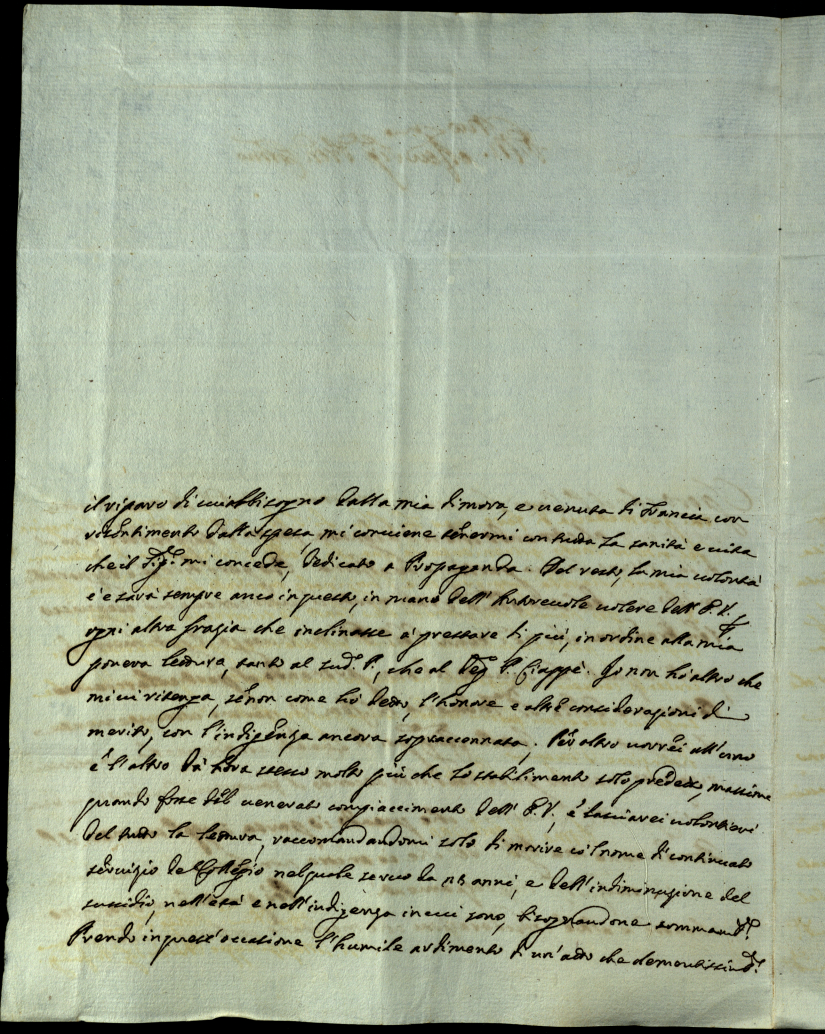 il riparo di cui abbisogno dalla mia dimora, e venuta di Francia con
risentimento dalla spesa, mi conviene tenermi con tutta la sanità e vita
che il Sig.r mi concede, dedicato a Propaganda. Del resto, la mia volontà
è e sarà sempre anco in questo, in mano dell' Autorevole volere dell' P. V.
ogni altra grazia che inclinasse a prestare di più, in ordine alla mia
povera lettura, tanto al sud.º P., che al P. Ciappè. Io non hò altro che
mi ci ritenga, se non come hò detto, l'honore e altre considerazioni di
merito, con l'indigenza ancora sopraccennata. Per altro vorrei all'uno
e l'altro dà hora stesso molto più che lo stabilimento solo predetto, massime
quando fosse del venerato compiaccimento dell' P. V., e lasciarei volontieri
del tutto la lettura, raccomandandomi solo di morire col nome di continuato
servizio de Collegio nel quale servo da anni, e dell'indiminuzione del
sussidio, nell'età e nell'indigenza in cui sono, bisognandone sommam.te
Prendo in quest'occasione l'humile ardimento di un'atto che